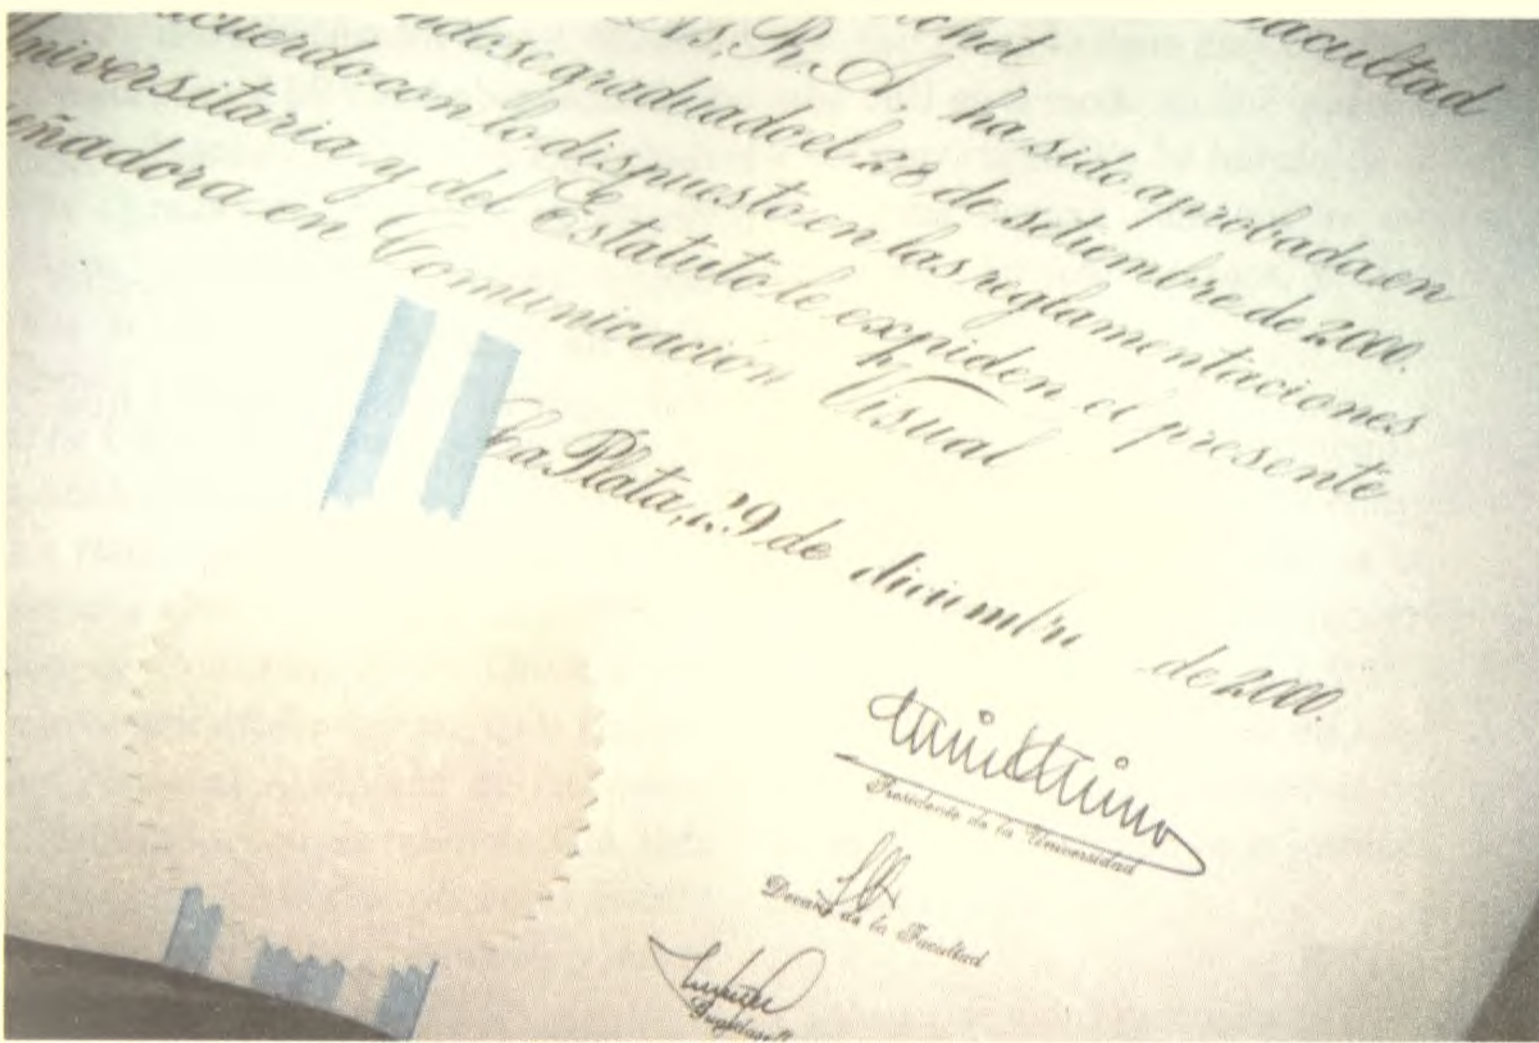 Facultad
R. A. ha sido aprobada en
graduado el 28 de setiembre de 2000.
acuerdo con lo dispuesto en las reglamentaciones
Universitaria y del Estatuto le expiden el presente
eñadora en Comunicación Visual
La Plata, 19 de diciembre de 2000.
Presidente de la Universidad
Decano de la Facultad